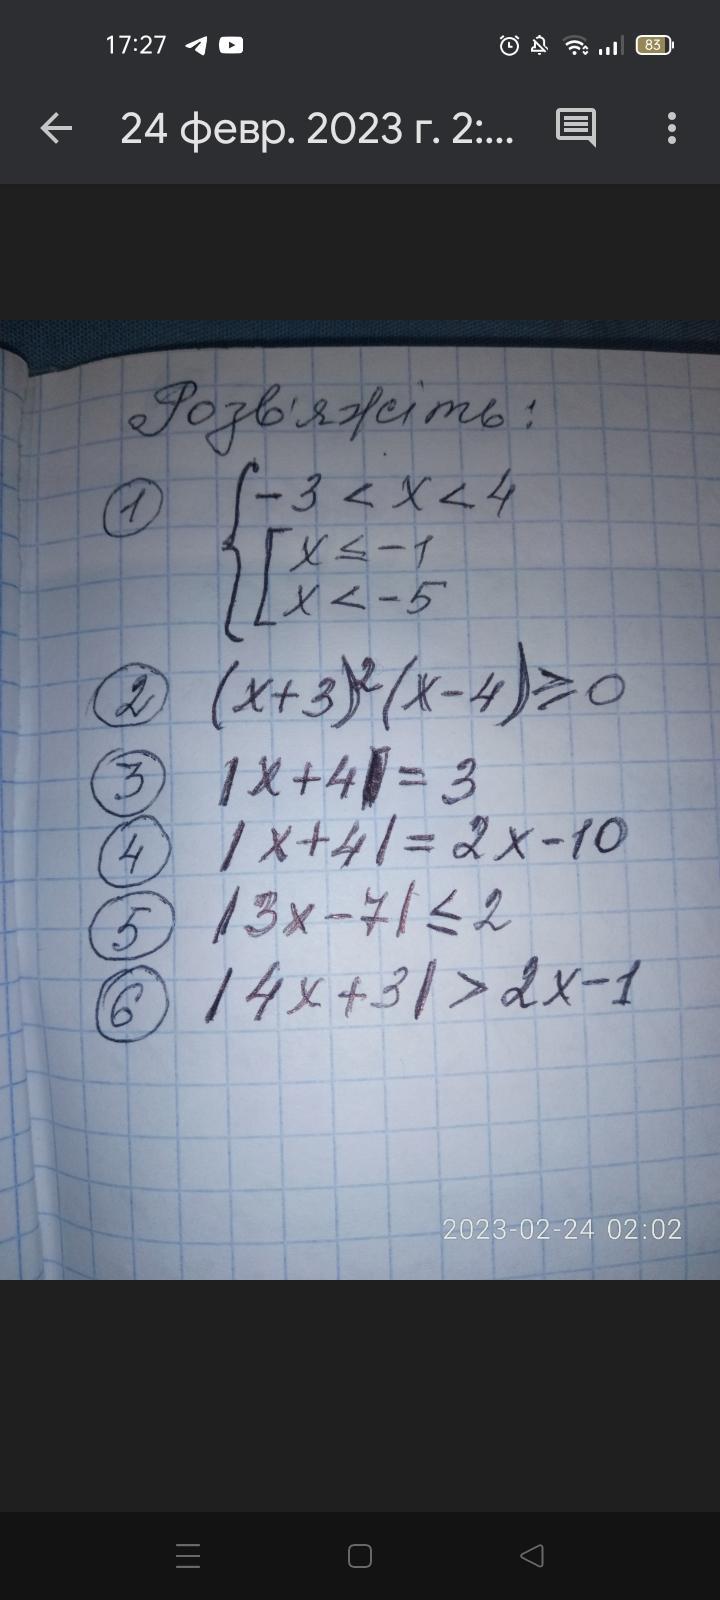 17:27 83
24 февр. 2023 г. 2:...
Розв'яжіть:
① { -3 < x < 4
[ x ≤ -1
x < -5
② (x+3)²(x-4) ≥ 0
③ |x+4| = 3
④ |x+4| = 2x-10
⑤ |3x-7| ≤ 2
⑥ |4x+3| > 2x-1
2023-02-24 02:02